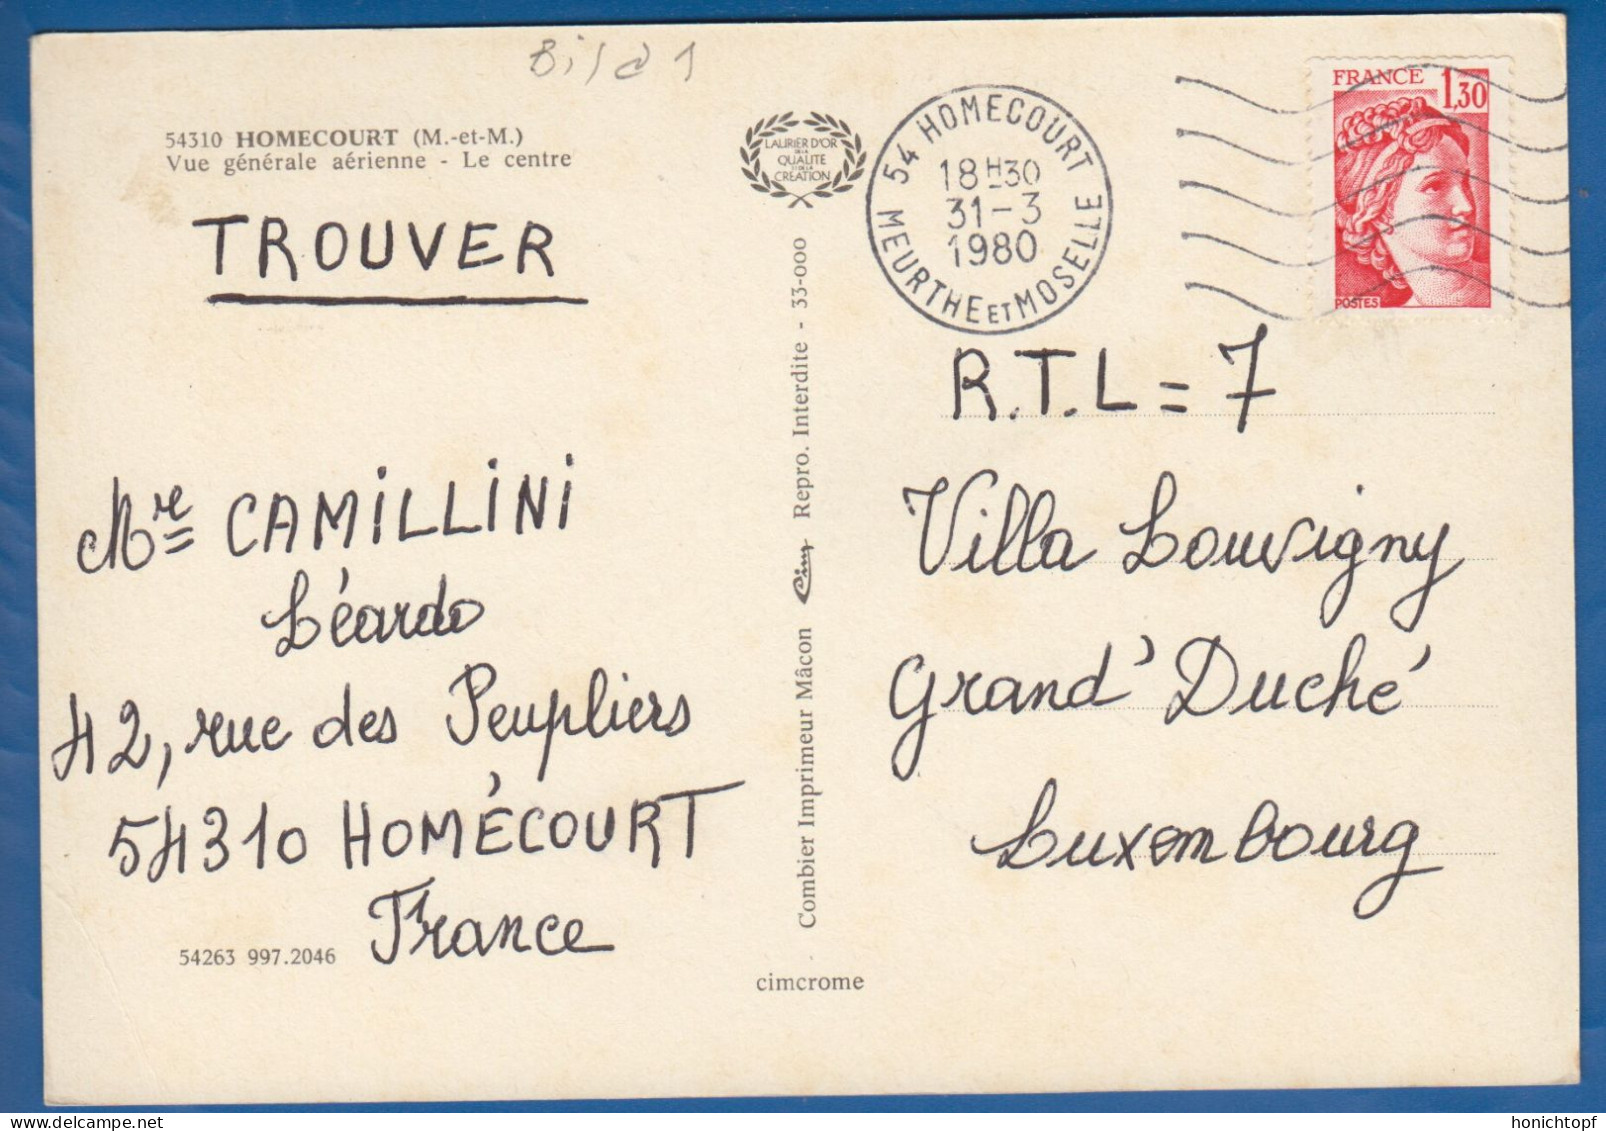 Bild 1
54310 HOMECOURT (M.-et-M.)
Vue générale aérienne - Le centre
TROUVER
Mre CAMiLLiNi
Léardo
42, rue des Peupliers
54310 HOMÉCOURT
France
54263 997.2046
LAURIER D'OR
DE LA
QUALITE
ET DE LA
CREATION
Combier Imprimeur Mâcon Cim Repro. Interdite - 33-000
cimcrome
54 HOMECOURT
18H30
31-3
1980
MEURTHE ET MOSELLE
FRANCE 1,30
POSTES
R.T.L = 7
Villa Louvigny
Grand' Duché
Luxembourg
honichtopf